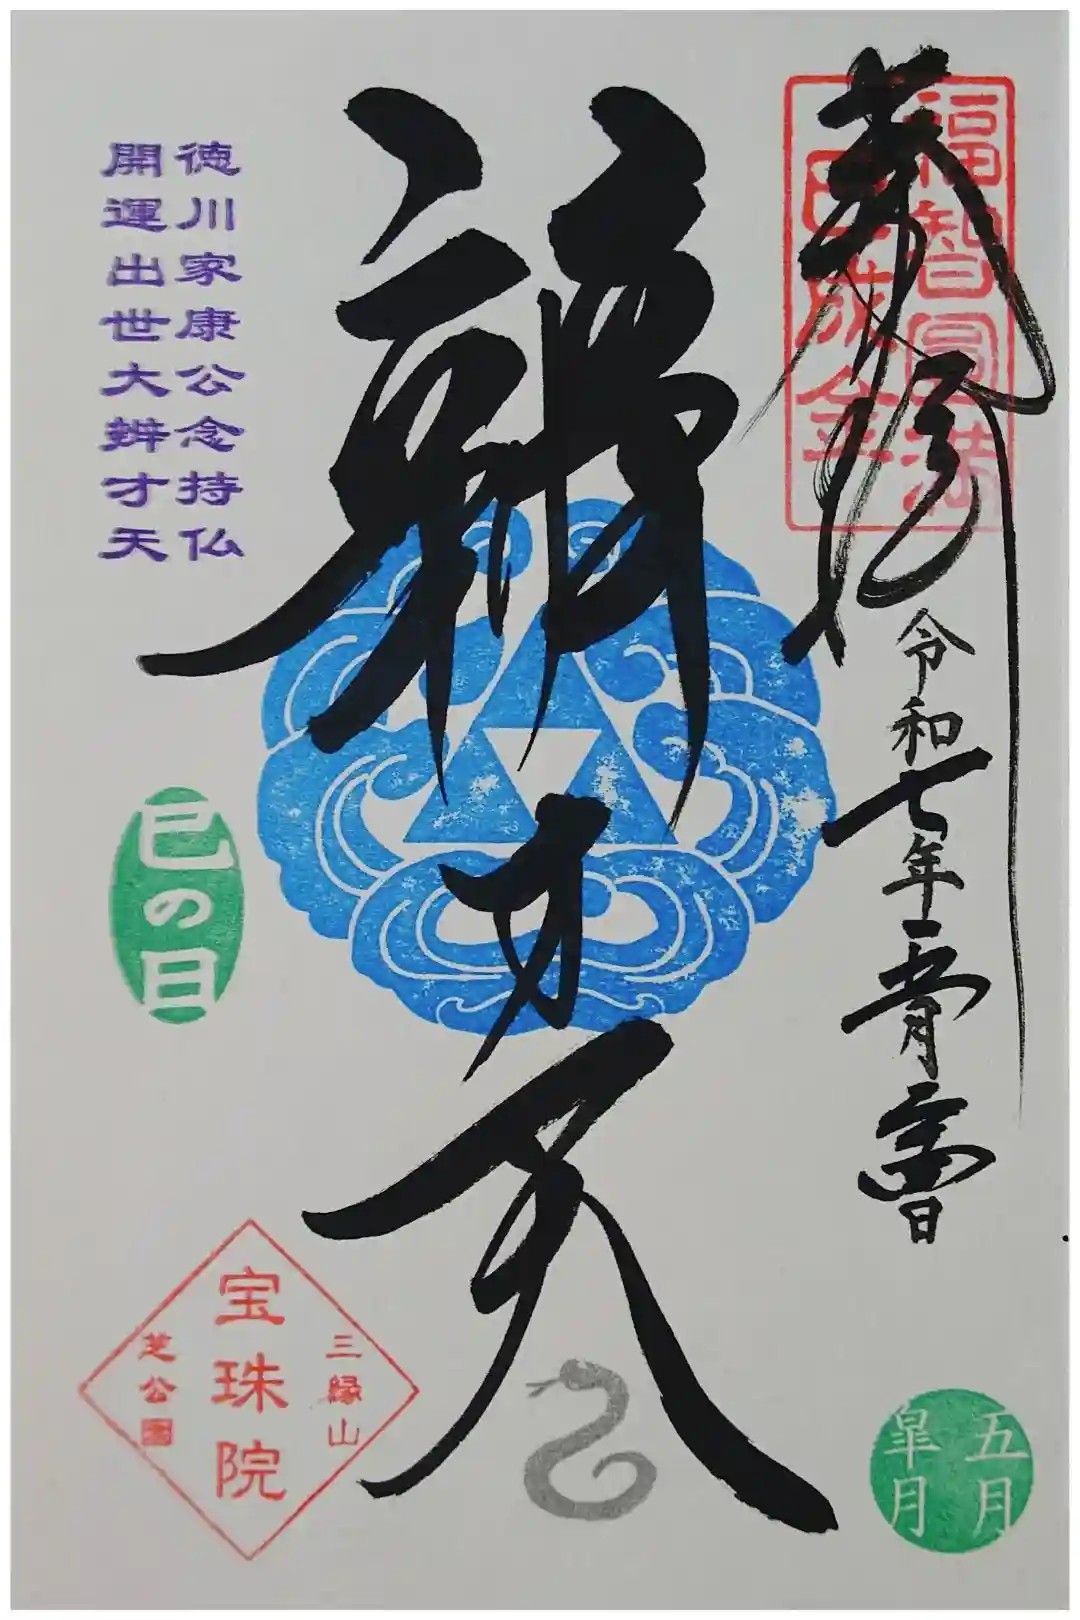 福智圓満
巳成金
令和七年
辨才天
徳川家康公念持仏
開運出世大辨才天
巳の日
三縁山
宝珠院
芝公園
五月
皐月